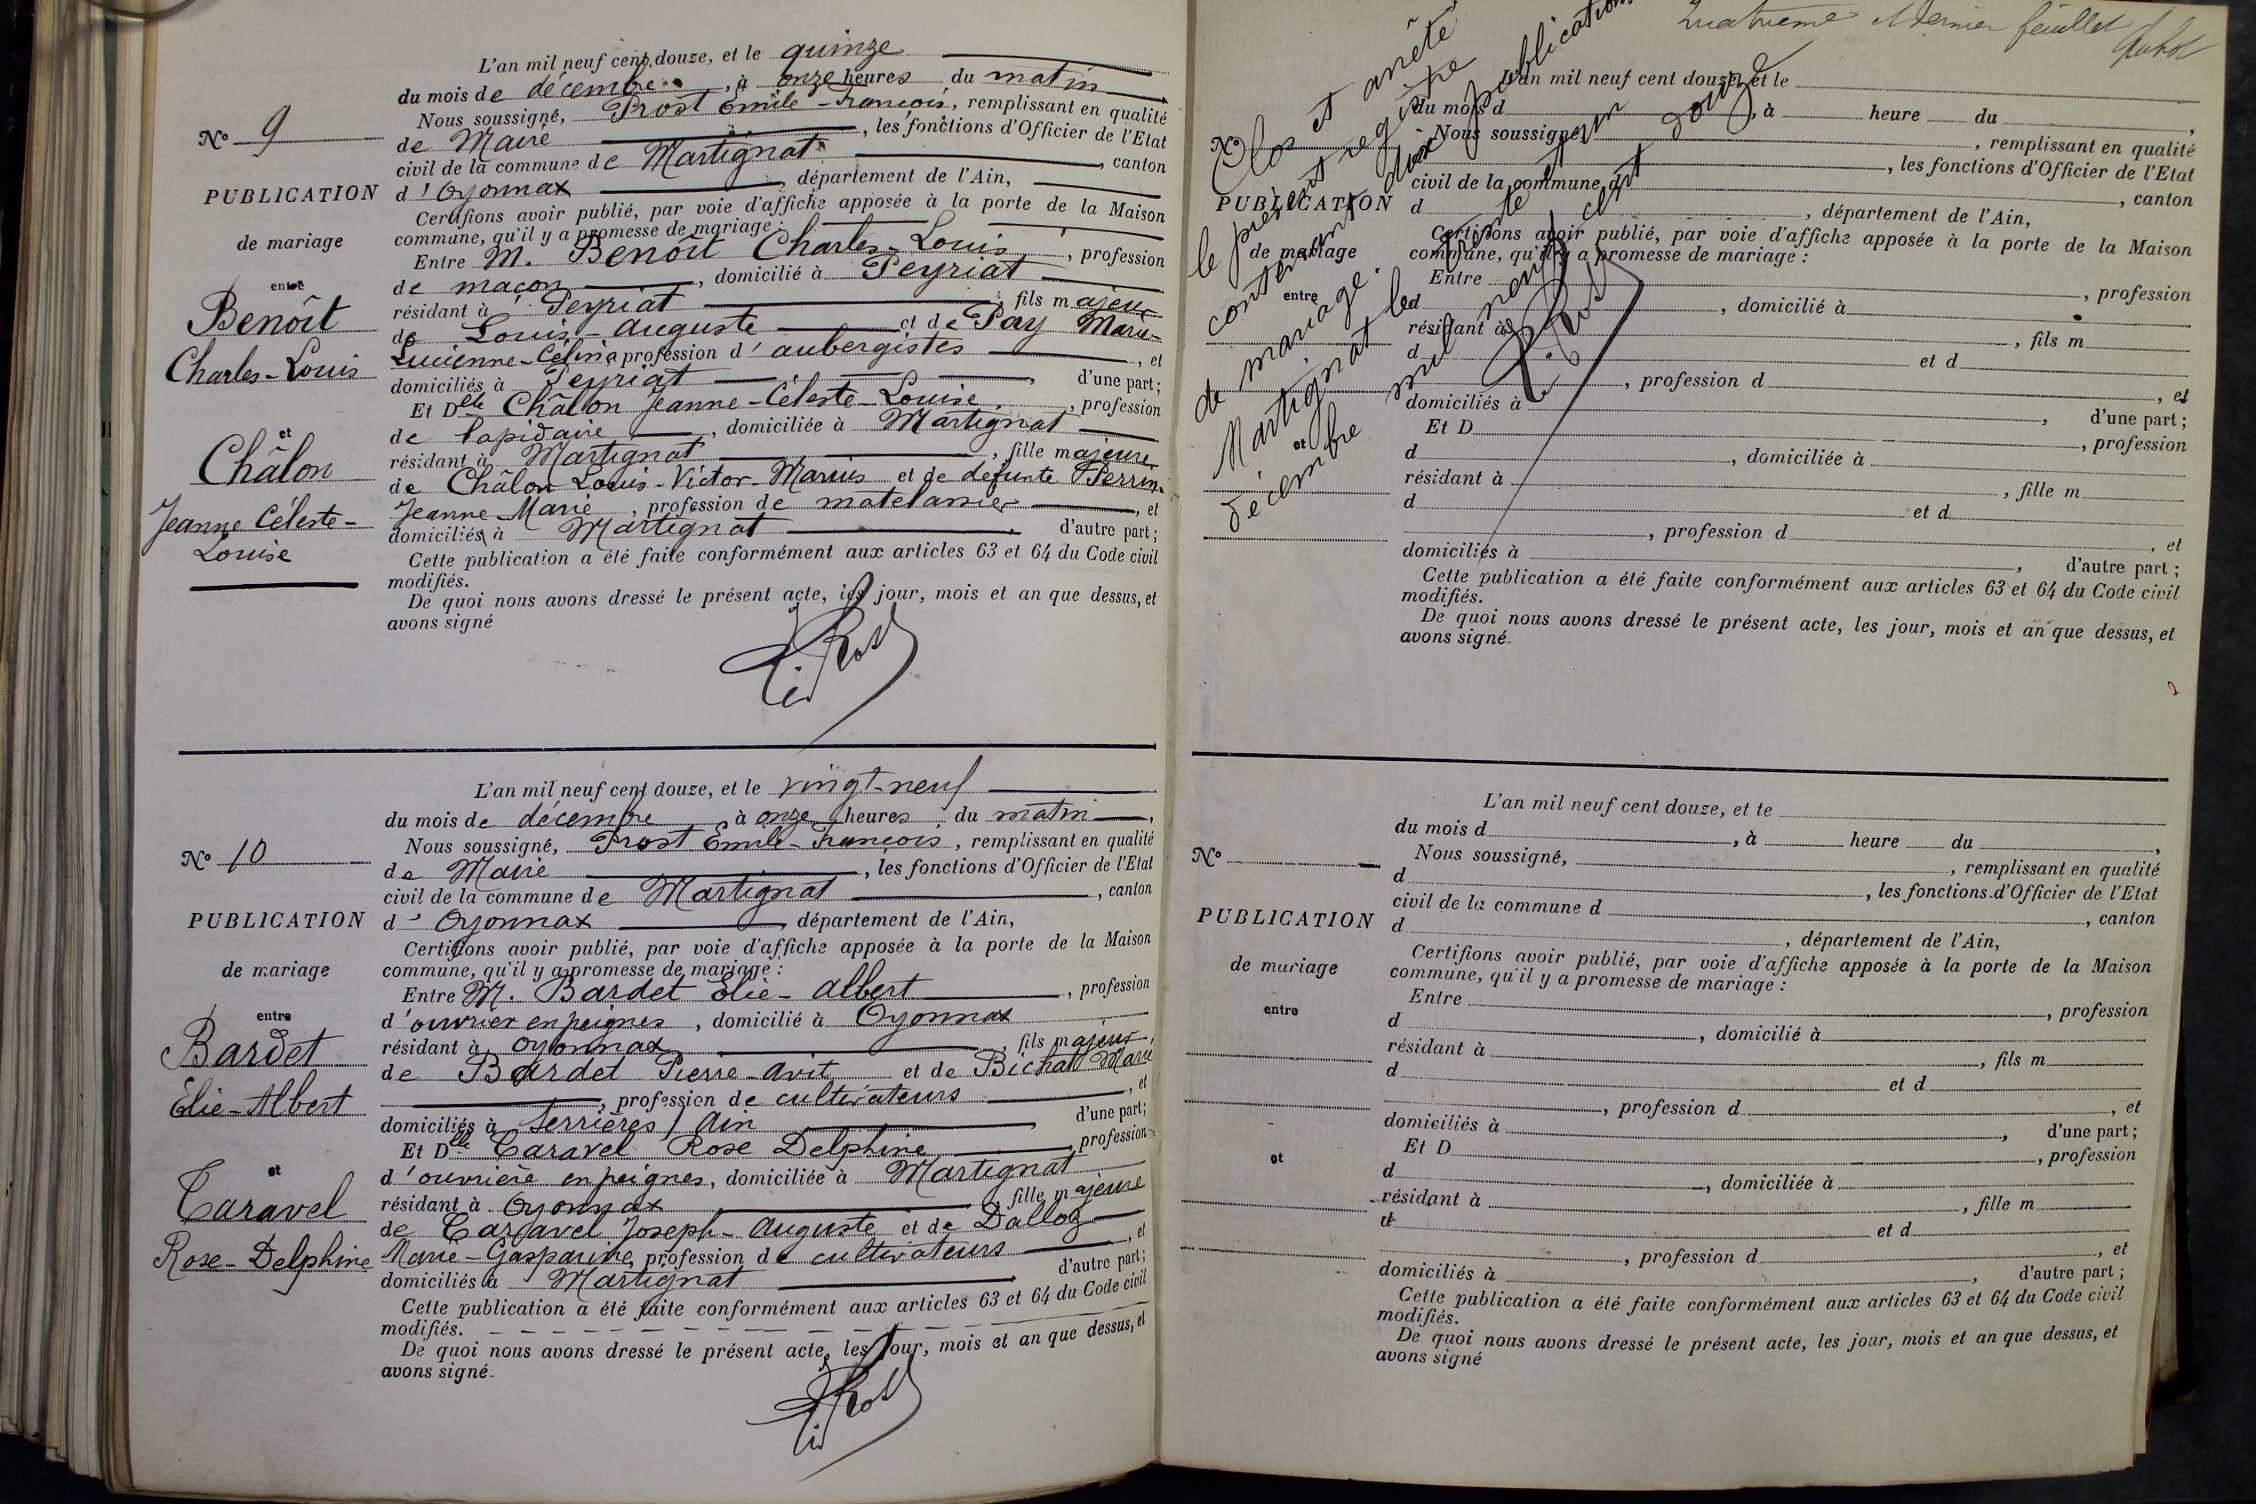 L'an mil neuf cent douze, et le quinze
du mois de décembre, à onze heures du matin
Nous soussigné, Prost Emile-François, remplissant en qualité
de Maire, les fonctions d'Officier de l'Etat
civil de la commune de Martignat, canton
d'Oyonnax, département de l'Ain,
Certifions avoir publié, par voie d'affiche apposée à la porte de la Maison
commune, qu'il y a promesse de mariage:
Entre M. Benoît Charles-Louis, profession
de maçon, domicilié à Peyriat
résidant à Peyriat, fils majeur
de Louis-Auguste et de Pay Marie-
Lucienne-Célina profession d'aubergistes, et
domiciliés à Peyriat, d'une part;
Et Delle Châlon Jeanne-Céleste-Louise, profession
de lapidaire, domiciliée à Martignat
résidant à Martignat, fille majeure
de Châlon Louis-Victor-Marius et de défunte Perrin
Jeanne-Marie, profession de matelassier, et
domiciliés à Martignat, d'autre part;
Cette publication a été faite conformément aux articles 63 et 64 du Code civil
modifiés.
De quoi nous avons dressé le présent acte, les jour, mois et an que dessus, et
avons signé
E. Prost
No 9
PUBLICATION
de mariage
entre
Benoît
Charles-Louis
et
Châlon
Jeanne Céleste-
Louise
L'an mil neuf cent douze, et le vingt-neuf
du mois de décembre à onze heures du matin,
Nous soussigné, Prost Emile-François, remplissant en qualité
de Maire, les fonctions d'Officier de l'Etat
civil de la commune de Martignat, canton
d'Oyonnax, département de l'Ain,
Certifions avoir publié, par voie d'affiche apposée à la porte de la Maison
commune, qu'il y a promesse de mariage:
Entre M. Bardet Elie-Albert, profession
d'ouvrier en peignes, domicilié à Oyonnax
résidant à Oyonnax, fils majeur,
de Bardet Pierre-Avit et de Bichat Marie
, profession de cultivateurs, et
domiciliés à Serrières / Ain d'une part;
Et Delle Caravel Rose Delphine, profession
d'ouvrière en peignes, domiciliée à Martignat
résidant à Oyonnax, fille majeure
de Caravel Joseph-Auguste et de Dalloz
Marie-Gasparine, profession de cultivateurs, et
domiciliés à Martignat, d'autre part;
Cette publication a été faite conformément aux articles 63 et 64 du Code civil
modifiés.
De quoi nous avons dressé le présent acte, les jour, mois et an que dessus, et
avons signé.
E. Prost
No 10
PUBLICATION
de mariage
entre
Bardet
Elie-Albert
et
Caravel
Rose-Delphine
Quatrième et dernier feuillet
L'an mil neuf cent douze, et le
du mois d, à heure du,
Nous soussigné, remplissant en qualité
, les fonctions d'Officier de l'Etat
civil de la commune d, canton
d, département de l'Ain,
Certifions avoir publié, par voie d'affiche apposée à la porte de la Maison
commune, qu'il y a promesse de mariage:
Entre, profession
d, domicilié à
résidant à, fils m
d et d
, profession d, et
domiciliés à, d'une part;
Et D, profession
d, domiciliée à
résidant à, fille m
d et d
, profession d, et
domiciliés à, d'autre part;
Cette publication a été faite conformément aux articles 63 et 64 du Code civil
modifiés.
De quoi nous avons dressé le présent acte, les jour, mois et an que dessus, et
avons signé.
No
PUBLICATION
de mariage
entre
et
Clos et arrêté
le présent registre
contenant dix publications
de mariage.
Martignat le trente et un
décembre mil neuf cent douze
E. Prost
L'an mil neuf cent douze, et le
du mois d, à heure du,
Nous soussigné, remplissant en qualité
d, les fonctions d'Officier de l'Etat
civil de la commune d, canton
d, département de l'Ain,
Certifions avoir publié, par voie d'affiche apposée à la porte de la Maison
commune, qu'il y a promesse de mariage:
Entre, profession
d, domicilié à
résidant à, fils m
d et d
, profession d, et
domiciliés à, d'une part;
Et D, profession
d, domiciliée à
résidant à, fille m
d et d
, profession d, et
domiciliés à, d'autre part;
Cette publication a été faite conformément aux articles 63 et 64 du Code civil
modifiés.
De quoi nous avons dressé le présent acte, les jour, mois et an que dessus, et
avons signé
No
PUBLICATION
de mariage
entre
et